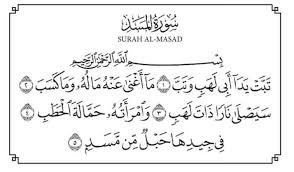 سُورَةُ المَسَدِ
SURAH AL-MASAD
بِسْمِ اللَّهِ الرَّحْمَٰنِ الرَّحِيمِ
تَبَّتْ يَدَا أَبِي لَهَبٍ وَتَبَّ ١ مَا أَغْنَىٰ عَنْهُ مَالُهُ وَمَا كَسَبَ ٢
سَيَصْلَىٰ نَارًا ذَاتَ لَهَبٍ ٣ وَامْرَأَتُهُ حَمَّالَةَ الْحَطَبِ ٤
فِي جِيدِهَا حَبْلٌ مِّن مَّسَدٍ ٥